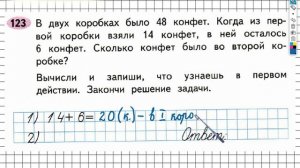 123 В двух коробках было 48 конфет. Когда из пер-
вой коробки взяли 14 конфет, в ней осталось
6 конфет. Сколько конфет было во второй ко-
робке?
Вычисли и запиши, что узнаешь в первом
действии. Закончи решение задачи.
1) 14+6=20 (к.) – в I коро
2)
Ответ: